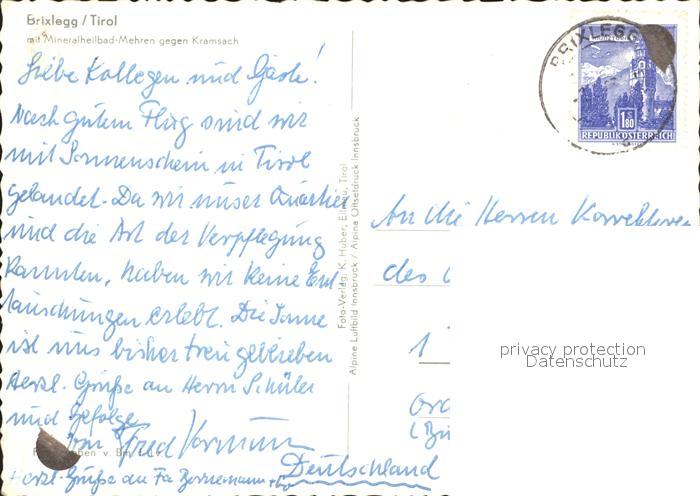 Brixlegg / Tirol
mit Mineralheilbad-Mehren gegen Kramsach
Liebe Kollegen und Gäste!
Nach gutem Flug sind wir
mit Sonnenschein in Tirol
gelandet. Da wir unser Quartier
und die Art der Verpflegung
kannten, haben wir keine Ent
täuschungen erlebt. Die Sonne
ist uns bisher treu geblieben
Herzl. Grüße an Herrn Schüler
und Gefolge
Fred
Herzl. Grüße an Fa
Foto-Verlag, K. Huber, Tirol
Alpine Luftbild Innsbruck / Alpina Offsetdruck Innsbruck
BRIXLEGG
1.80
REPUBLIK ÖSTERREICH
An die Herren Korrektoren
des
1
Deutschland
privacy protection
Datenschutz